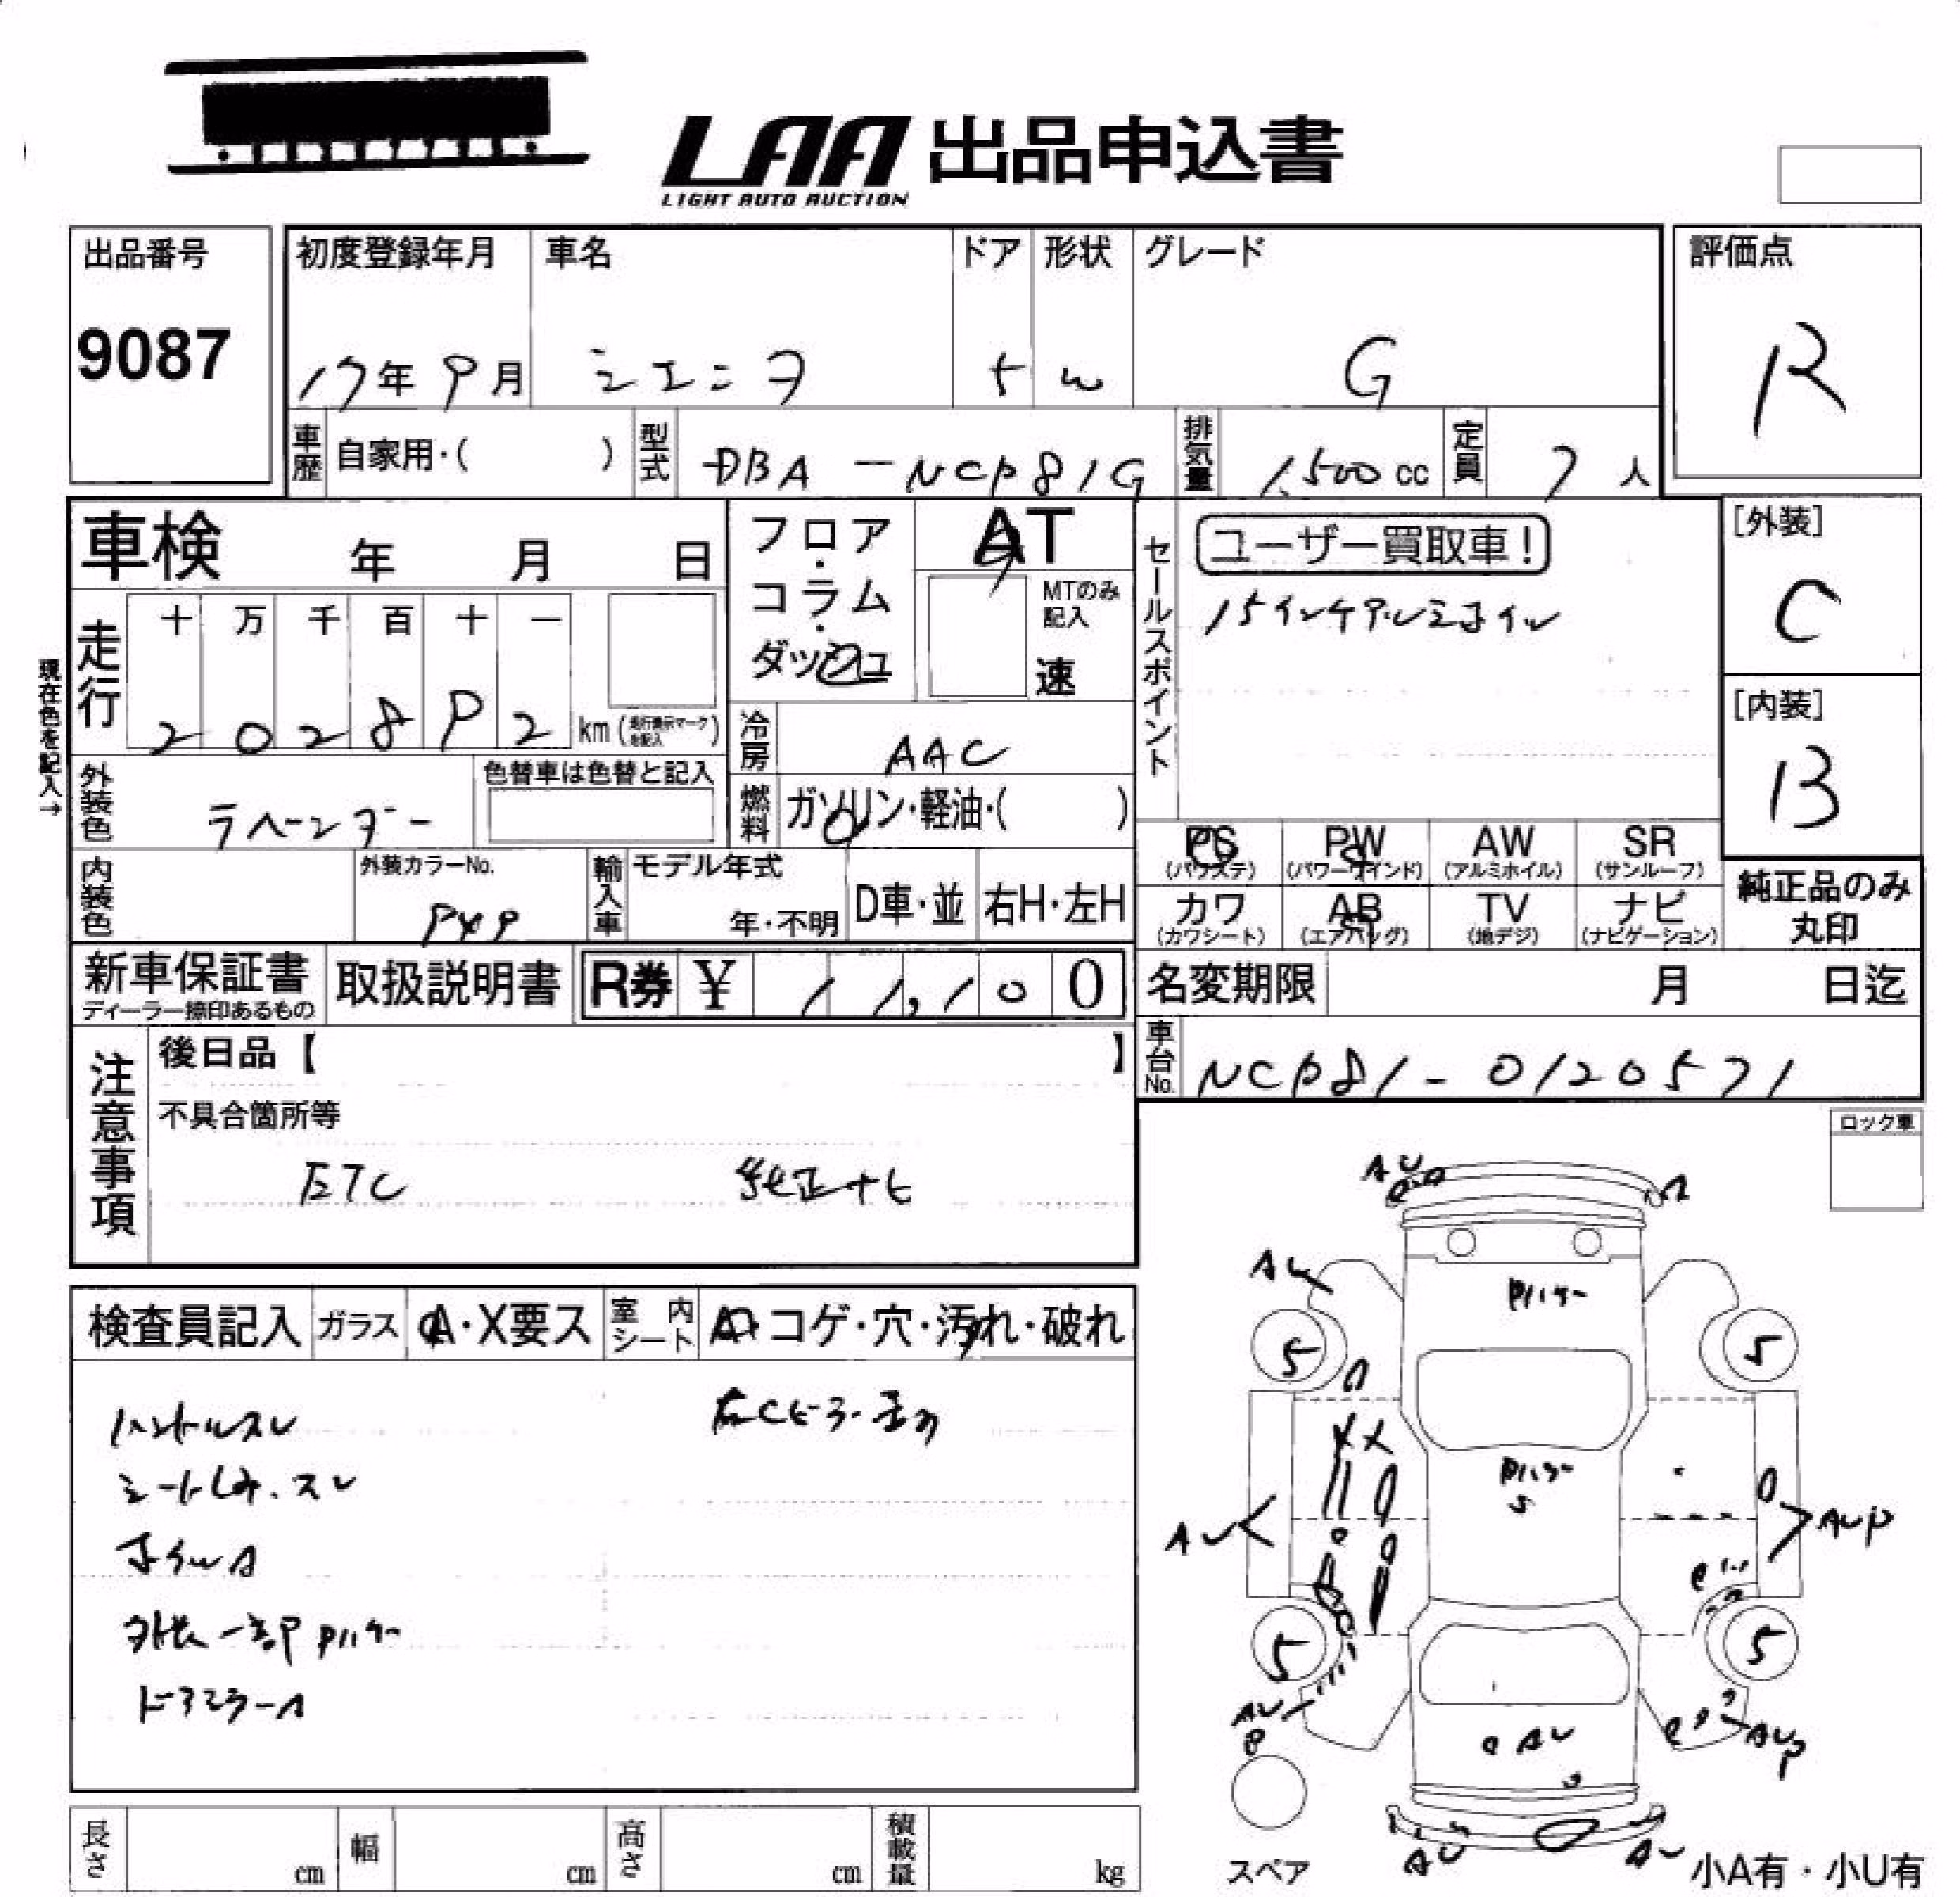 LAA 出品申込書
LIGHT AUTO AUCTION
出品番号
9087
初度登録年月
17年9月
車名
シエンタ
ドア
5
形状
W
グレード
G
評価点
R
車歴 自家用・( )
型式 DBA-NCP81G
排気量 1,500cc
定員 7人
車検 年 月 日
フロア・コラム・ダッシュ
AT
MTのみ記入
速
セールスポイント
ユーザー買取車!
15インチアルミホイル
[外装]
C
[内装]
B
現在色を記入→
走行
十 万 千 百 十 一
202892 km (走行表示マークを記入)
冷房 AAC
外装色 ラベンダー
色替車は色替と記入
燃料 ガソリン・軽油・( )
PS (パワステ)
PW (パワーウインド)
AW (アルミホイル)
SR (サンルーフ)
内装色
外装カラーNo.
輸入車
モデル年式
年・不明
D車・並
右H・左H
カワ (カワシート)
AB (エアバッグ)
TV (地デジ)
ナビ (ナビゲーション)
純正品のみ丸印
新車保証書
ディーラー捺印あるもの
取扱説明書
R券 ¥ 11,100
名変期限 月 日迄
車台No. NCP81-0120571
注意事項
後日品【 】
不具合箇所等
ETC 純正ナビ
ロック車
検査員記入
ガラス A・X要ス
室内シート
コゲ・穴・汚れ・破れ
ハンドルスレ
右Cピラー
シートしみ・スレ
ホイルA
外装一部Pハゲ
ドアミラーA
AU
A
AU
Pハゲ
5
5
XX
Pハゲ
S
AU
AUP
5
5
AU
P
AU
AUP
AU
AU
スペア
小A有・小U有
長さ cm
幅 cm
高さ cm
積載量 kg